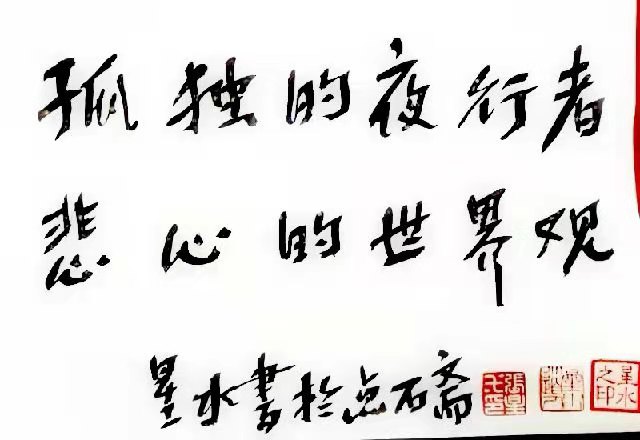 孤独的夜行者
悲心的世界观
星水書於点石斋
星水之印